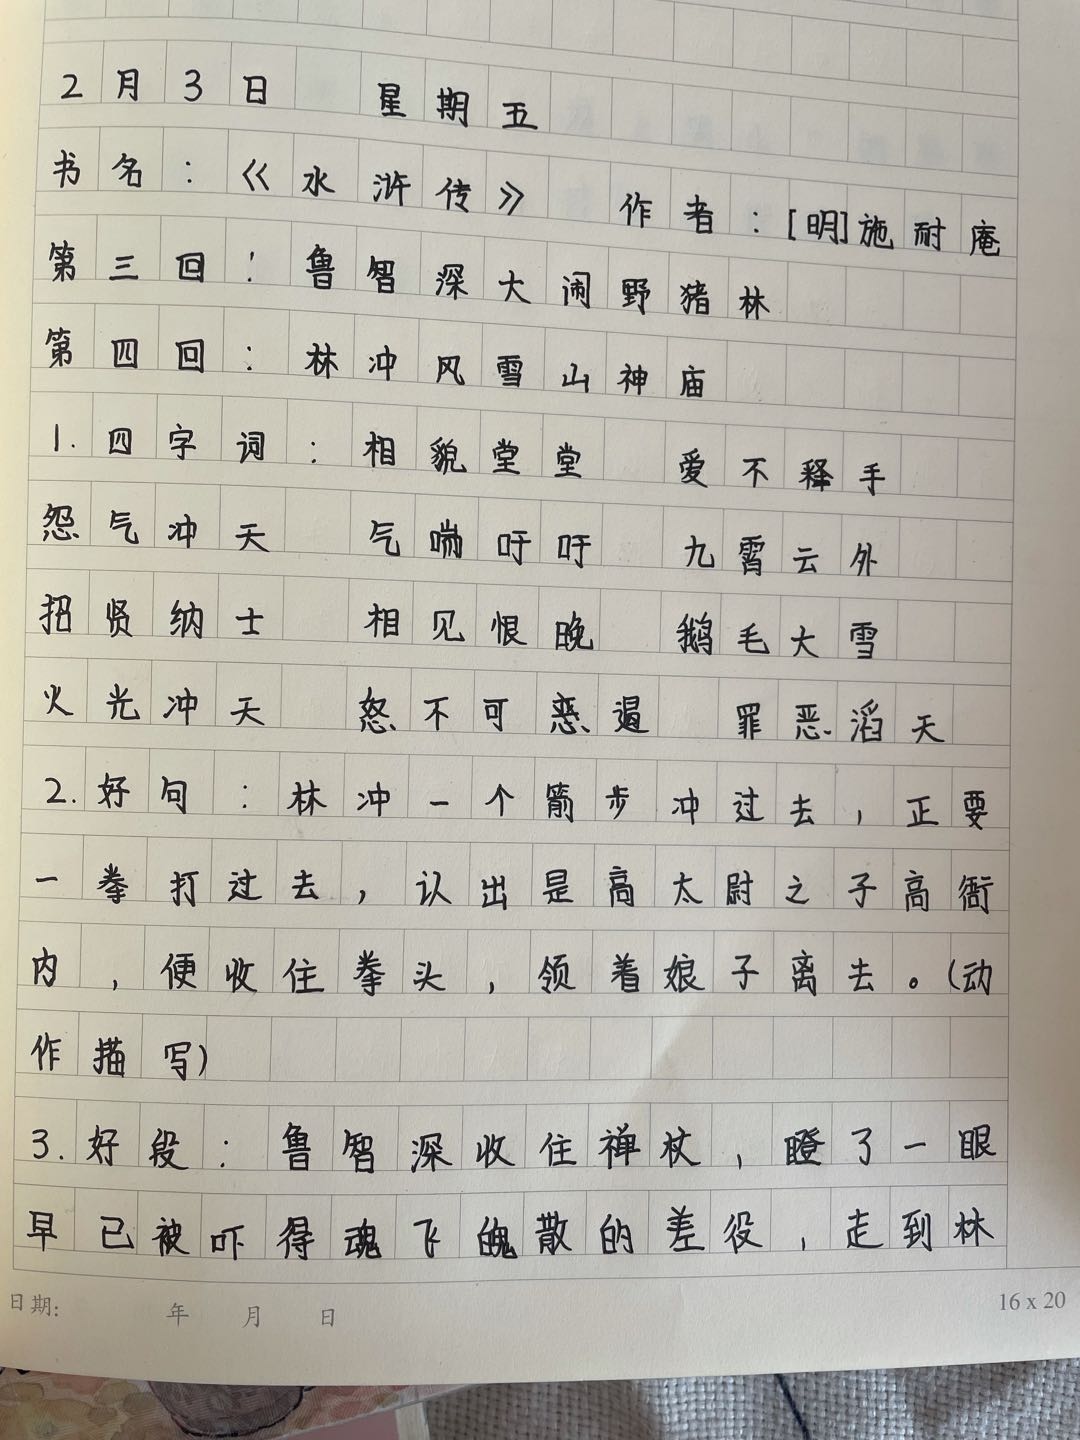 2月3日 星期五
书名:《水浒传》 作者:[明]施耐庵
第三回:鲁智深大闹野猪林
第四回:林冲风雪山神庙
1.四字词:相貌堂堂 爱不释手
怨气冲天 气喘吁吁 九霄云外
招贤纳士 相见恨晚 鹅毛大雪
火光冲天 怒不可恶遏 罪恶滔天
2.好句:林冲一个箭步冲过去,正要
一拳打过去,认出是高太尉之子高衙
内,便收住拳头,领着娘子离去。(动
作描写)
3.好段:鲁智深收住禅杖,瞪了一眼
早已被吓得魂飞魄散的差役,走到林
日期: 年 月 日
16 x 20